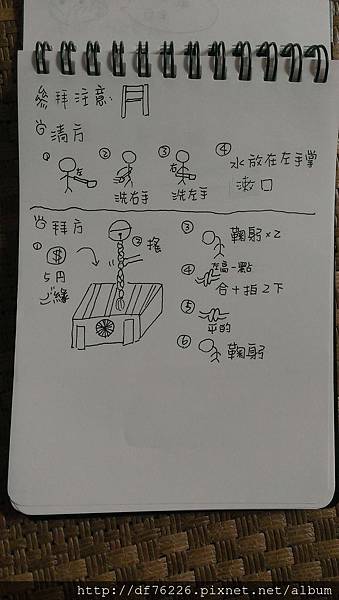 參拜注意
清方
① 左
② 洗右手
③ 右 洗左手
④ 水放在左手掌
漱口
拜方
① $
5円
ご緣
② 搖
③ 鞠躬×2
④ 右高一點
合+拍2下
⑤ 平的
⑥ 鞠躬
http://df76226.pixnet.net/album